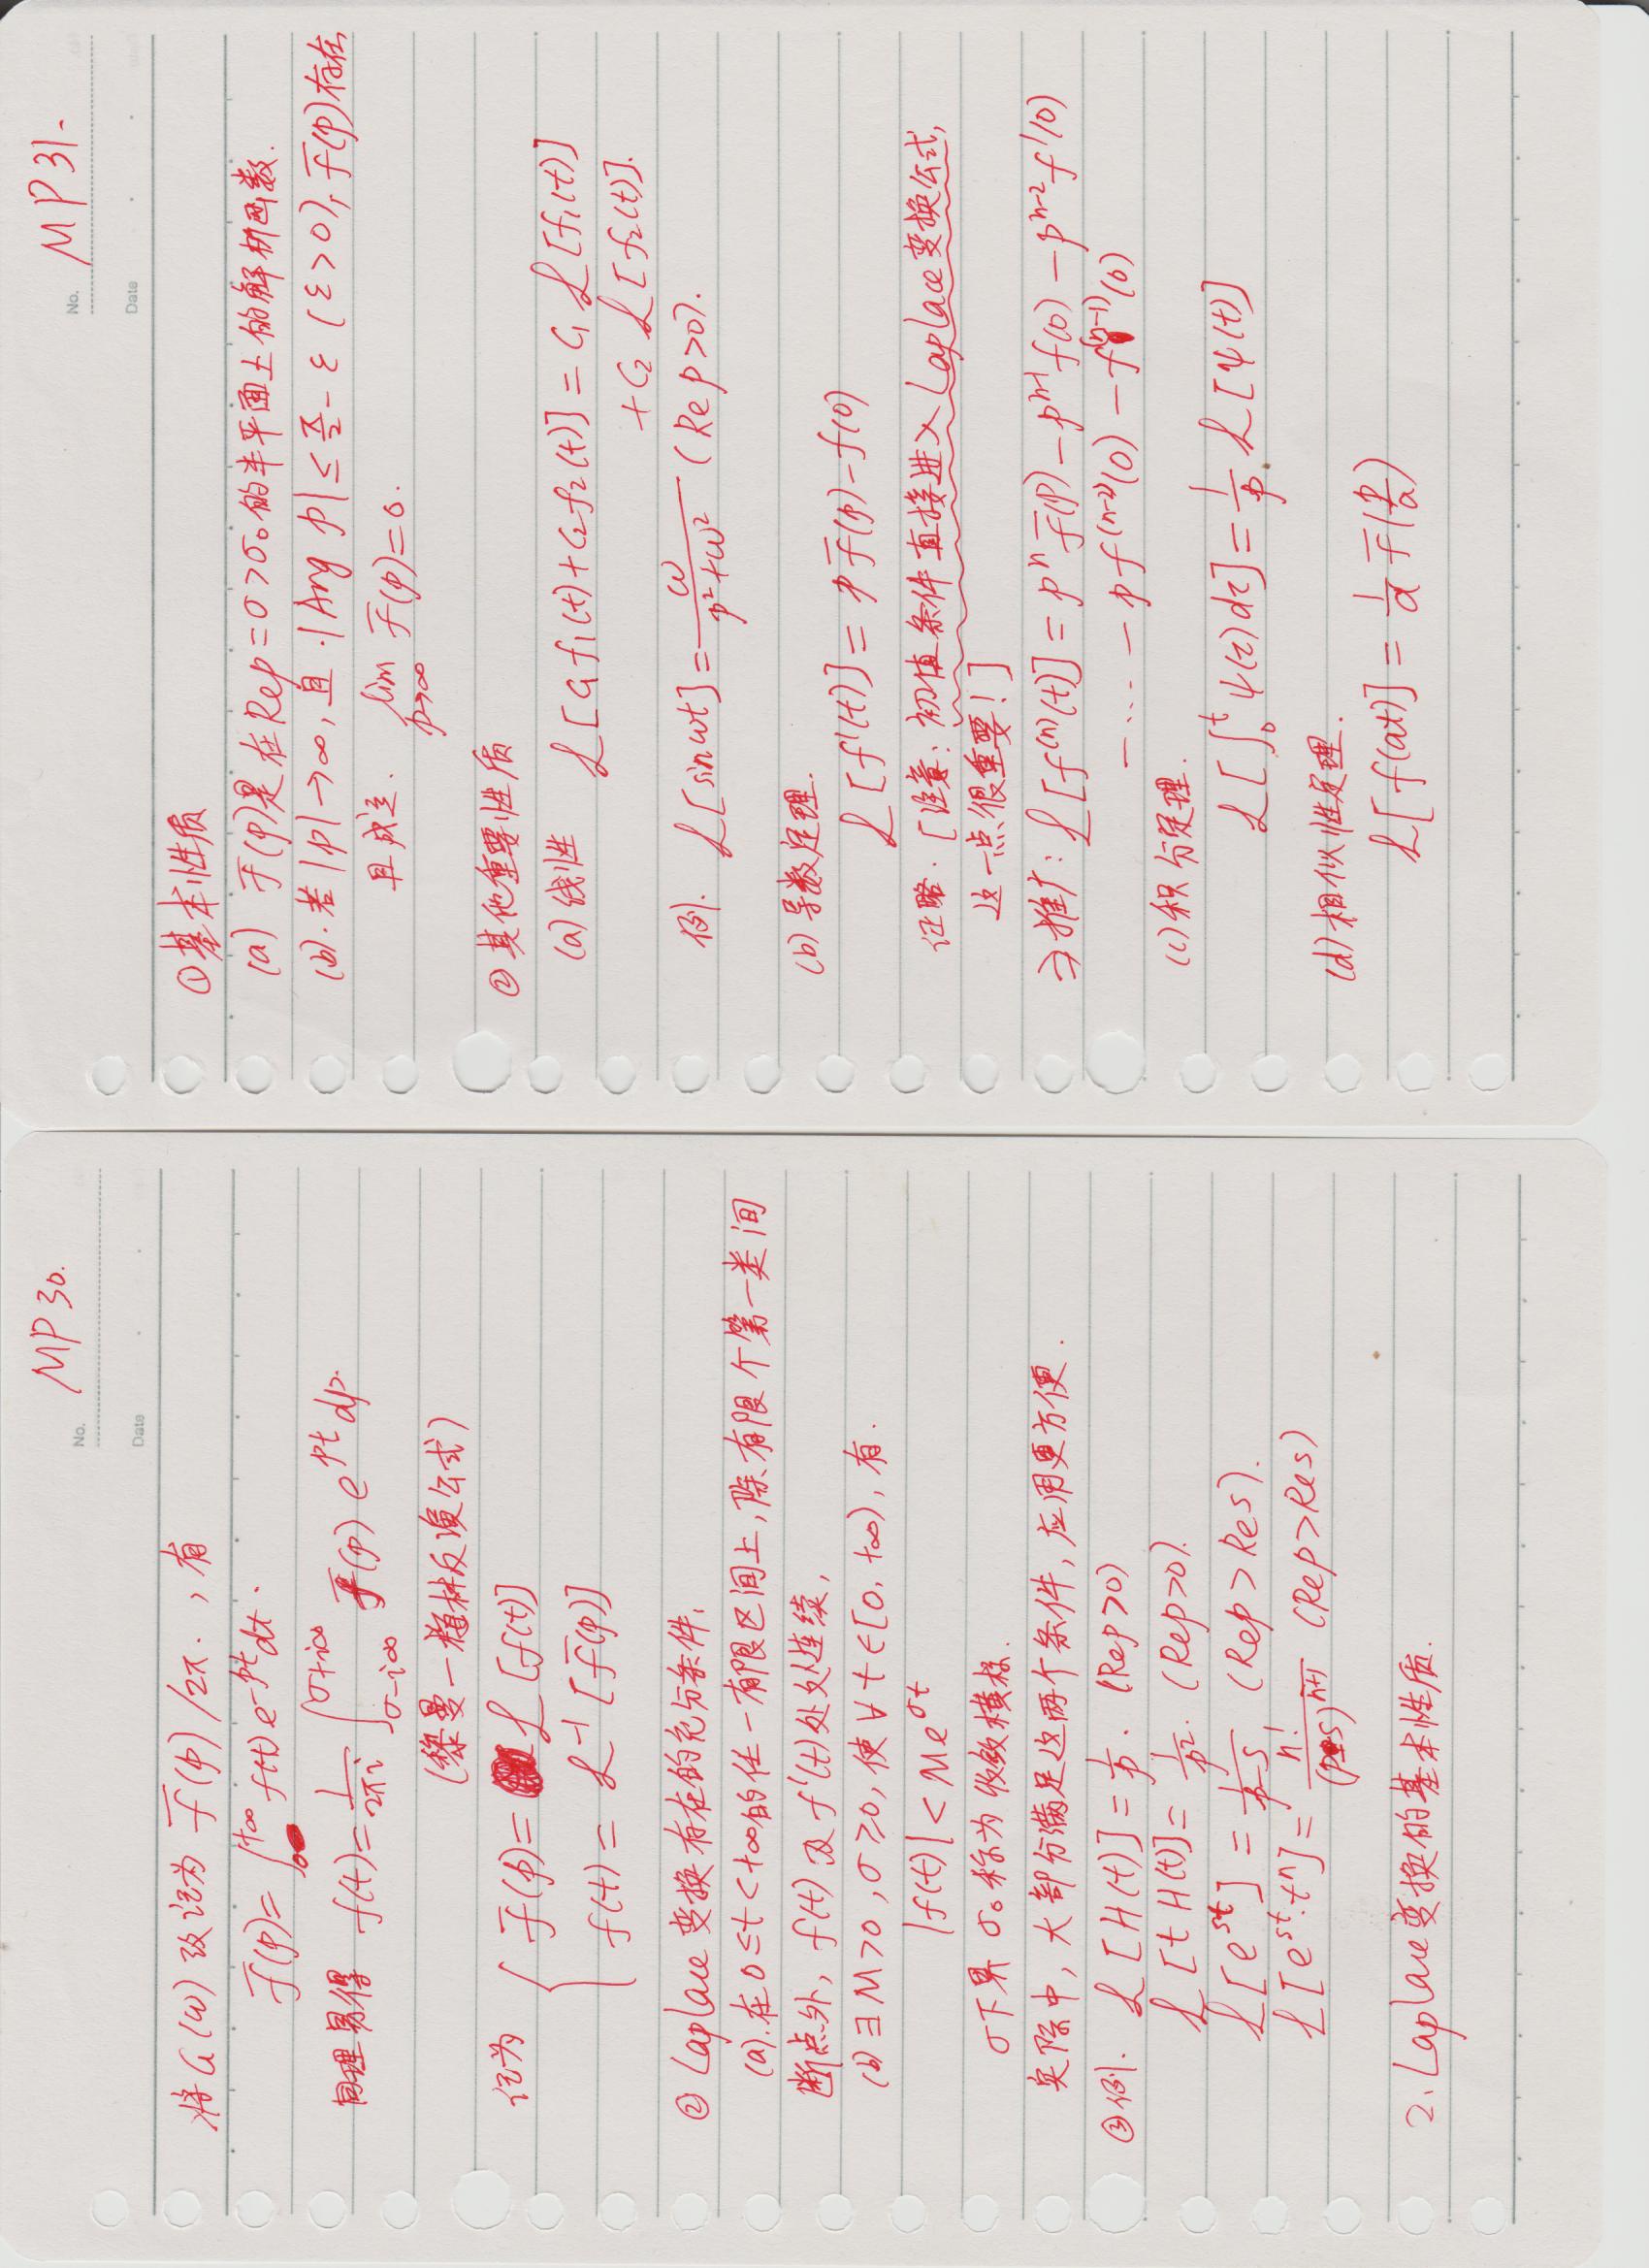 No. MP30.
Date
将G(ω)改记为 f̅(p)/2π.,有
f̅(p)=∫₀^{+∞} f(t)e^{-pt}dt.
同理易得 f(t)=\frac{1}{2πi}∫_{σ-i∞}^{σ+i∞} f̅(p)e^{pt}dp.
(黎曼—梅林反演公式)
记为 { f̅(p)= ℒ[f(t)]
f(t)= ℒ^{-1}[f̅(p)]
② Laplace变换存在的充分条件,
(a).在0≤t<+∞的任一有限区间上,除有限个第一类间
断点外, f(t)及f'(t)处处连续,
(b)∃M>0,σ≥0,使∀t∈[0,+∞),有.
|f(t)|<Me^{σt}
σ下界σ₀称为收敛横标.
实际中,大部分满足这两个条件,应用更方便.
③例. ℒ[H(t)]=\frac{1}{p}. (Rep>0)
ℒ[tH(t)]=\frac{1}{p²}. (Rep>0).
ℒ[e^{st}]=\frac{1}{p-s}, (Rep>Res).
ℒ[e^{st}·t^n]=\frac{n!}{(p-s)^{n+1}} (Rep>Res)
2、Laplace变换的基本性质.
No. MP31.
Date
①基本性质
(a) f̅(p)是在Rep=σ>σ₀的半平面上的解析函数.
(b).若|p|→∞,且.|Arg p|≤\frac{π}{2}-ε(ε>0), f̅(p)存在,
且成立. lim_{p→∞} f̅(p)=0.
②其他重要性质
(a)线性 ℒ[C₁f₁(t)+C₂f₂(t)]=C₁ℒ[f₁(t)]
+C₂ℒ[f₂(t)].
例. ℒ[sinωt]=\frac{ω}{p²+ω²} (Rep>0).
(b)导数定理.
ℒ[f'(t)]=pf̅(p)-f(0)
证略.[注意:初值条件直接进入Laplace变换公式,
这一点很重要!]
⇒推广: ℒ[f^{(n)}(t)]=p^n f̅(p)-p^{n-1}f(0)-p^{n-2}f'(0)
-…-pf^{(n-2)}(0)-f^{(n-1)}(0)
(c)积分定理.
ℒ[∫₀^t ψ(τ)dτ]=\frac{1}{p}ℒ[ψ(t)]
(d)相似性定理.
ℒ[f(at)]=\frac{1}{a}f̅(\frac{p}{a})